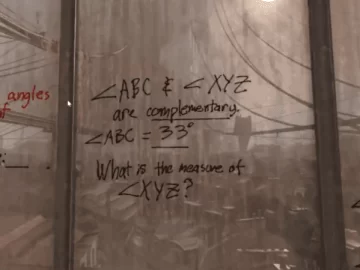 angles
∠ABC & ∠XYZ
are complementary.
∠ABC = 33°
What is the measure of
∠XYZ?